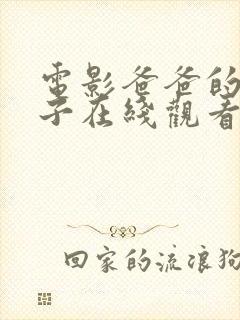 電影爸爸的
子在綫觀看
回家的流浪狗